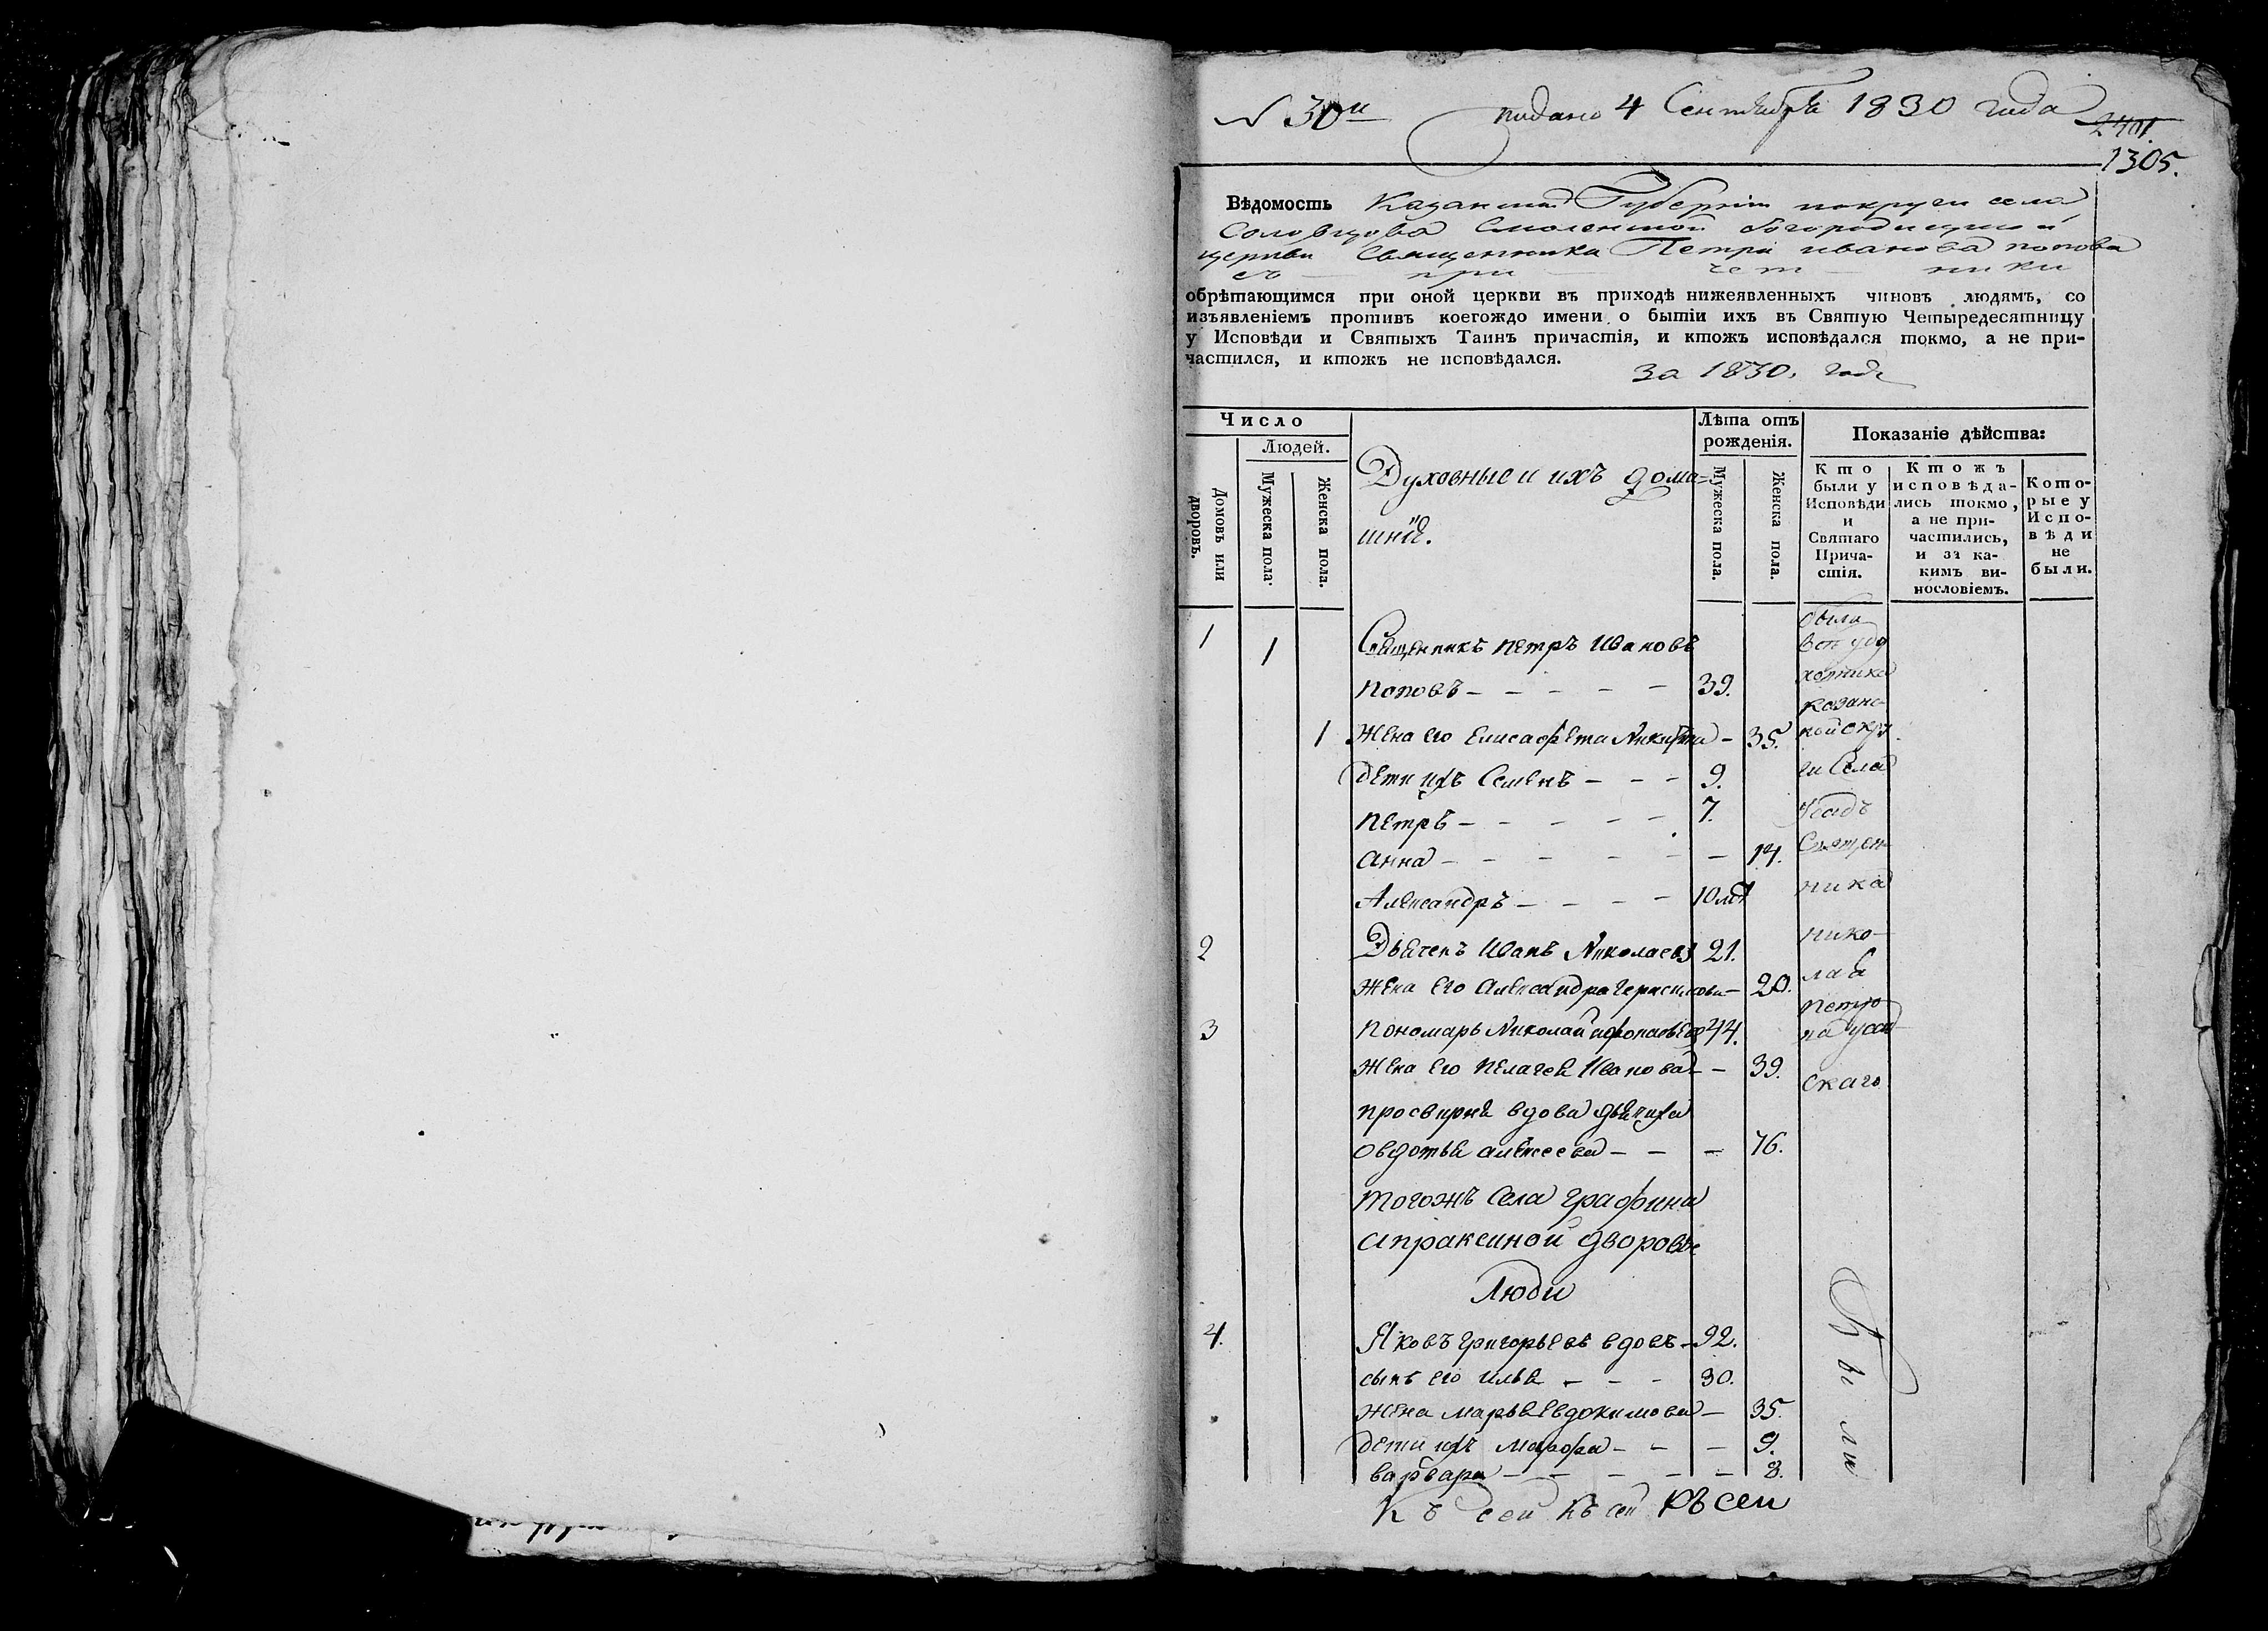 № 30й подано 4 Сентября 1830 года
2401
1305.
Вѣдомость Казанской Губерніи округи села
Соловцова Смоленской богородицкой
церкви Священника Петра иванова попова
съ при чет ники
обрѣтающимся при оной церкви въ приходѣ нижеявленныхъ чиновъ людямъ, со
изъявленіемъ противъ коегождо имени о бытіи ихъ въ Святую Четыредесятницу
у Исповѣди и Святыхъ Таинъ причастія, и ктожъ исповѣдался токмо, а не при-
частился, и ктожъ не исповѣдался.
За 1830, годъ
Число
Людей.
Домовъ или дворовъ.
Мужеска пола.
Женска пола.
Духовные и ихъ дома=
шнiя.
Лѣта отъ
рожденія.
Мужеска пола.
Женска пола.
Показаніе дѣйства:
Кто
были у
Исповѣди
и
Святаго
Прича-
стія.
Ктожъ
исповѣда-
лись токмо,
а не при-
частились,
и за ка-
кимъ ви-
нословіемъ.
Кото-
рые у
Испо-
вѣди
не
были.
1 1 Священникъ петръ Ивановъ
поповъ – – – – – 39.
1 Жена его Елисафета Никитина – 35.
Дети ихъ Семенъ – – – 9.
петръ – – – – – 7.
Анна – – – – – – – 14.
Александръ – – – – 10 ме
2 Дьячекъ Иванъ Николаевъ 21.
Жена его Александра Герасимова – 20.
3 Пономарь Николай афонасьевъ 44.
Жена его пелагея Иванова – – 39.
просвирня вдова дьячиха
овдотья алексеева – – – 76.
тогожъ села графина
апраксиной дворовые
Люди
4. Яковъ григорьевъ вдовъ – 92.
сынъ его илья – – – 30.
жена марья Евдокимова – 35.
дети ихъ марфа – – – 9.
варвара – – – – – – 3.
были
ка
казанс-
кой окру
ги Села
Усадъ
Священ-
ника
Нико-
лая
петро
ва уса
скаго
Были
Къ сей Къ сей Къ сей